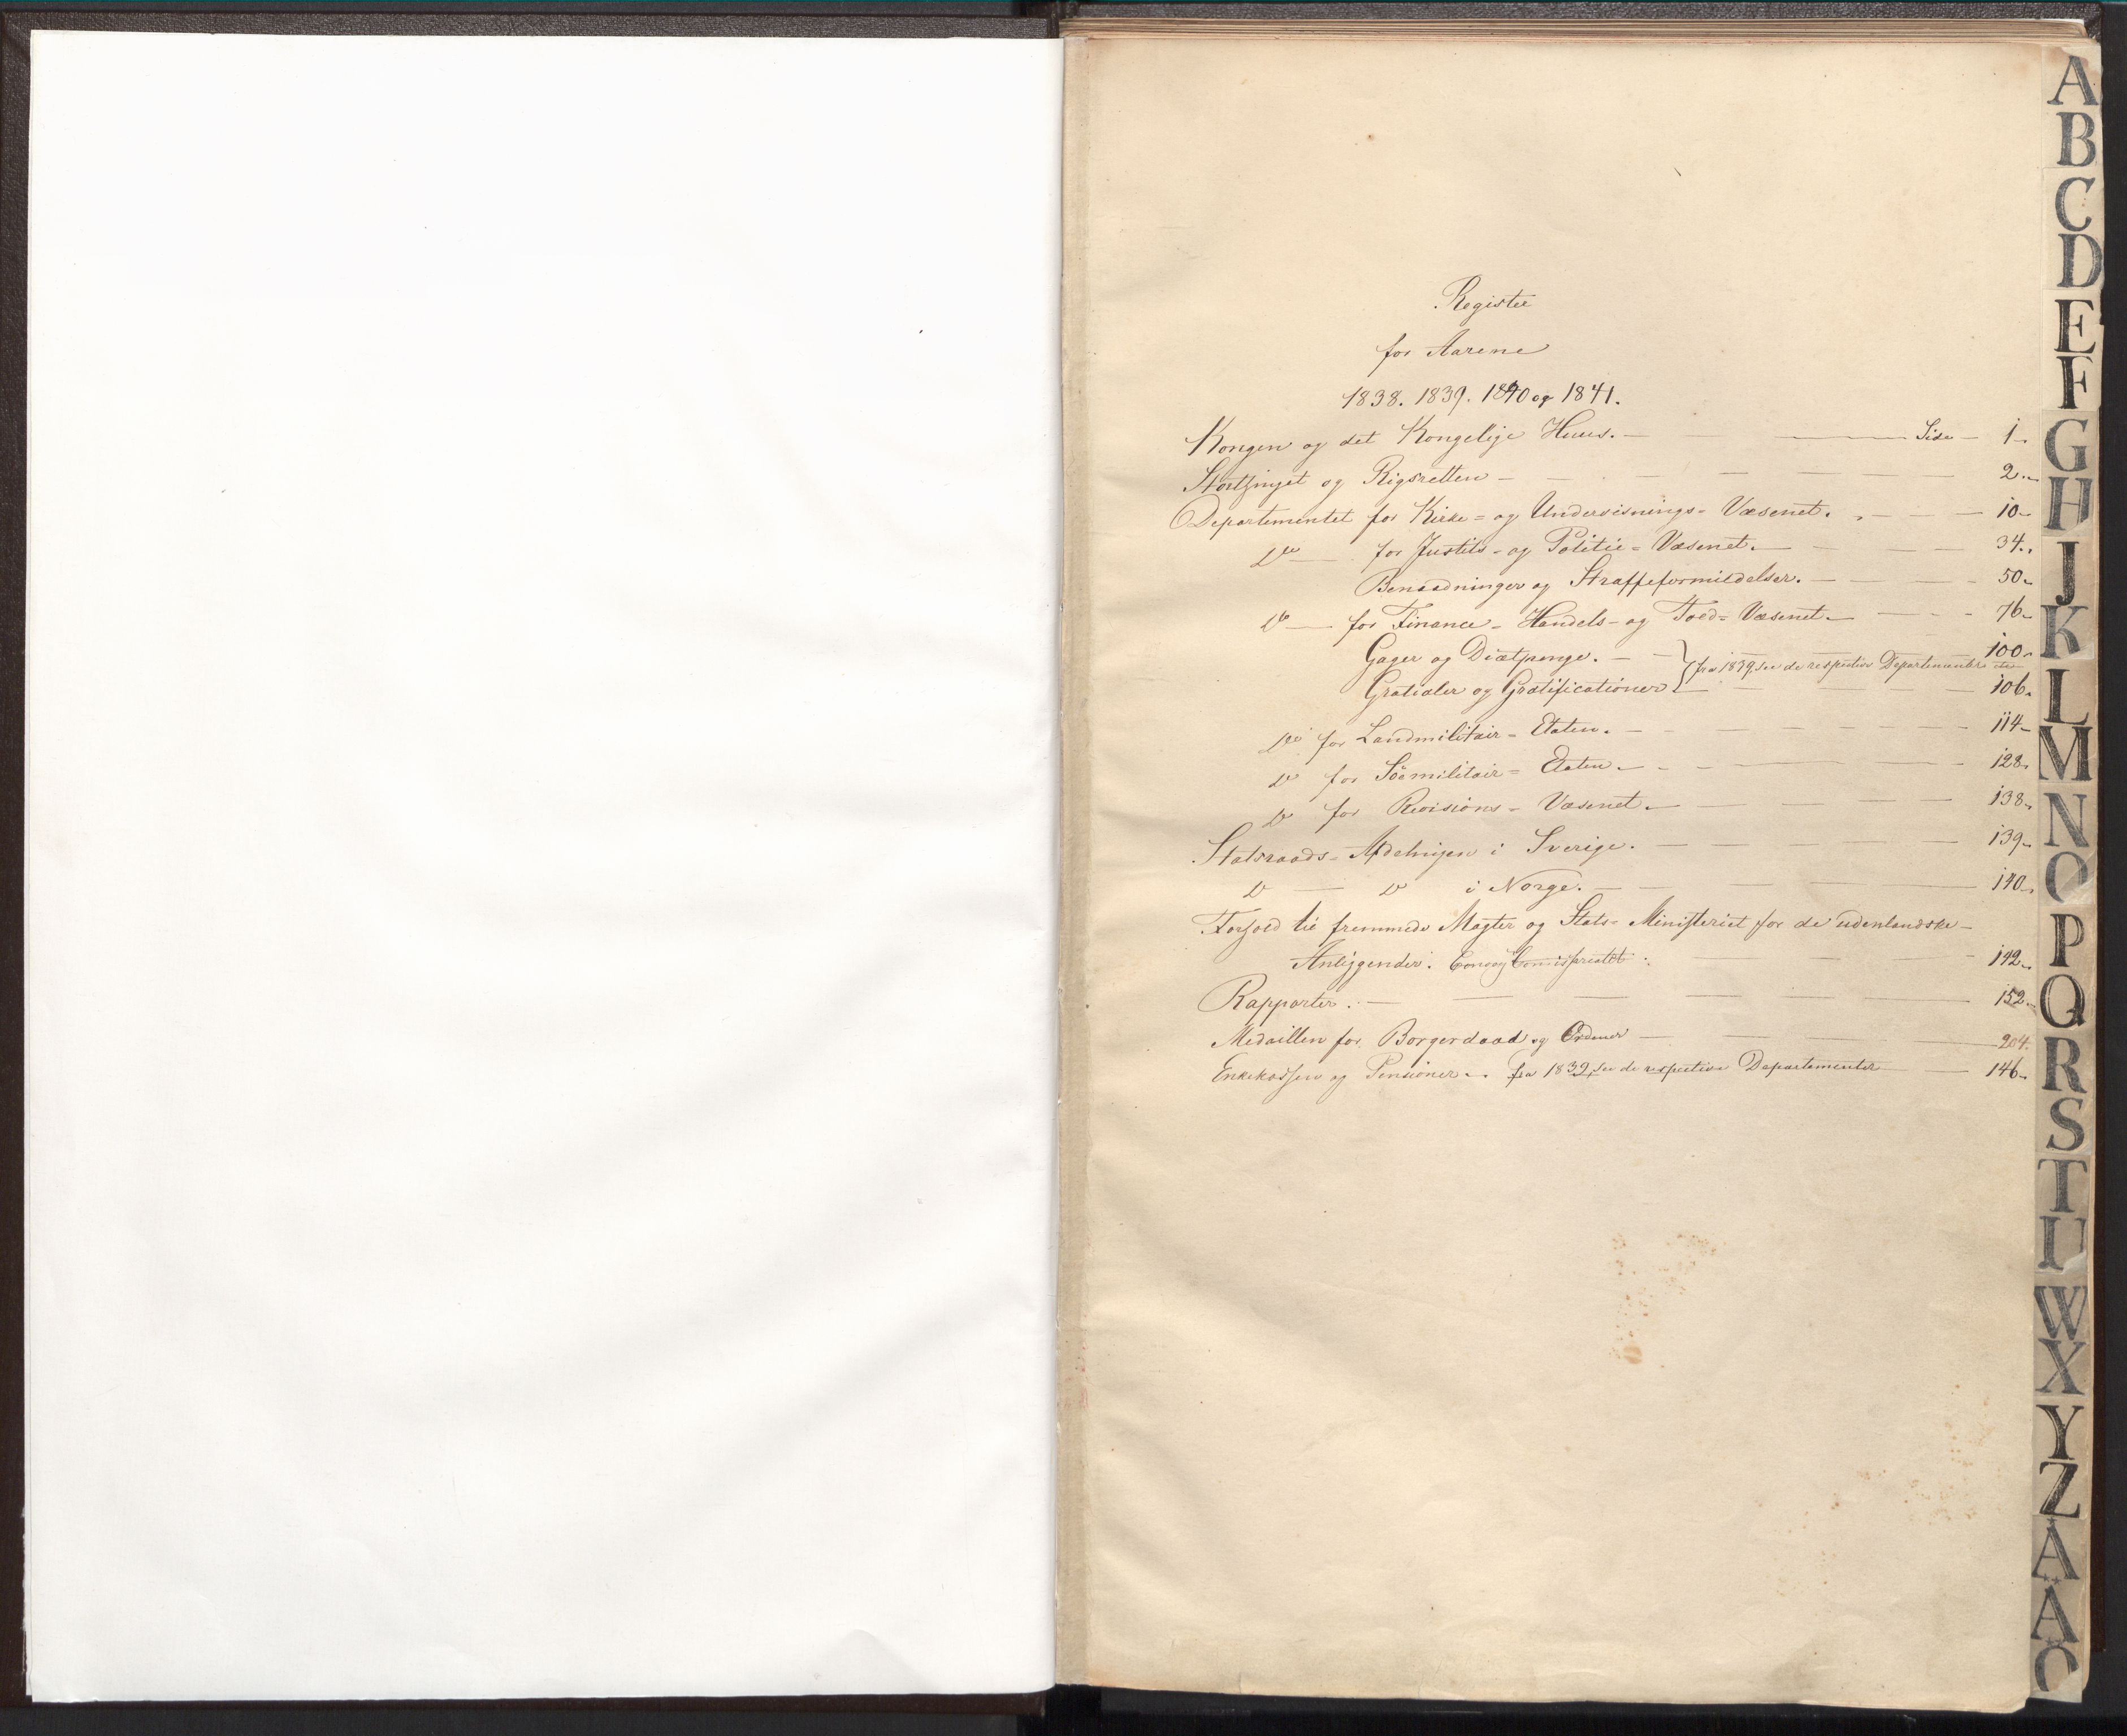 Register
for Aarene
1838. 1839. 1840 og 1841.
Kongen og det Kongelige Huus. — Side — 1.
Storthinget og Rigsretten — 2.
Departementet for Kirke- og Underviisnings- Væsenet. — 10.
Do — for Justits- og Politie- Væsenet. — 34.
Benaadninger og Straffeformildelser. — 50.
Do — for Finance- Handels- og Told- Væsenet. — 76.
Gager og Diætpenge. — 100.
fra 1839, see de respective Departementer
Gratialer og Gratificationer — 106.
Do for Landmilitair- Etaten. — 114.
Do for Søemilitair- Etaten. — 128.
Do for Revisions- Væsenet. — 138.
Statsraads- Afdelingen i Sverige. — 139.
Do — Do i Norge. — 140.
Forhold til fremmede Magter og Stats- Ministeriet for de udenlandske
Anliggender. — 142.
Rapporter. — 152.
Medaillen for Borgerdaad og Ordener — 204.
Enkekassen og Pensioner. fra 1839, see de respective Departementer — 146.
A
B
C
D
E
F
G
H
J
K
L
M
N
O
P
Q
R
S
T
U
W
X
Y
Z
Ä
Å
Ö